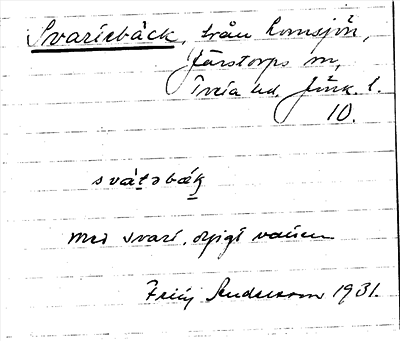 Svartebäck, från Lomsjön,
Järstorps sn,
Tveta hd, Jönk. l.
10.
svát̲əbák̲
med svart, dyigt vatten
1931.